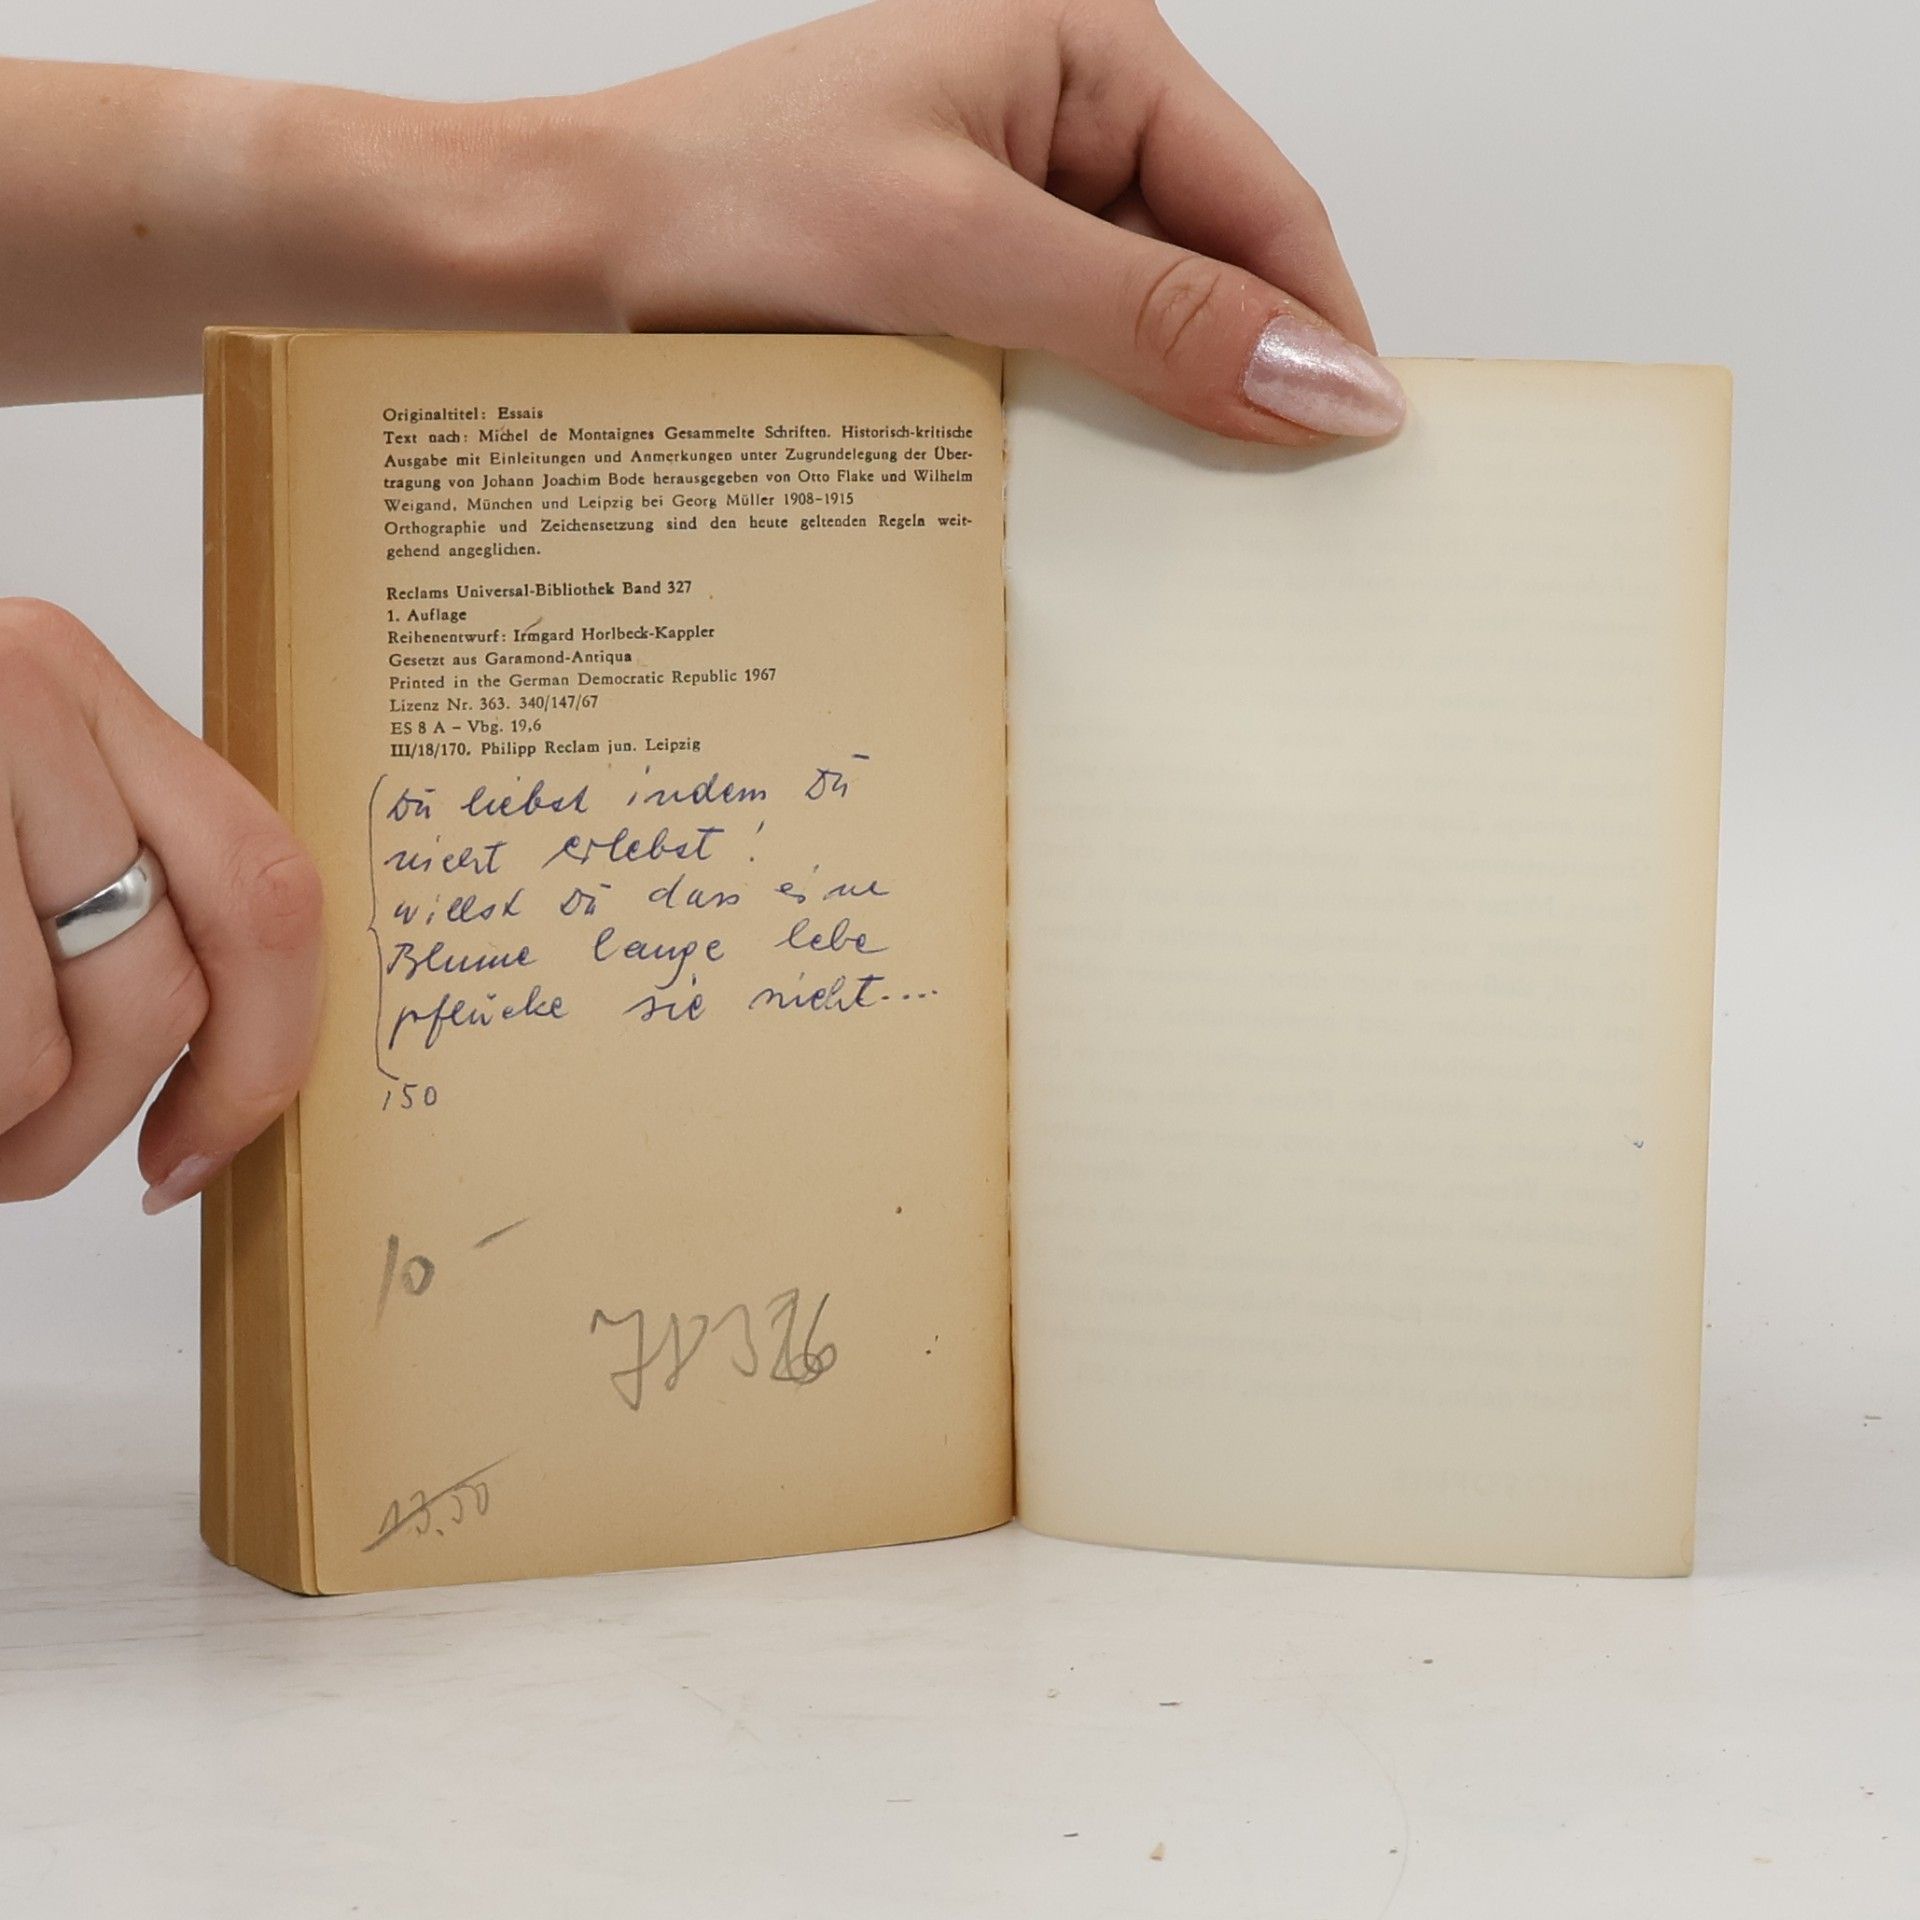 Originaltitel: Essais
Text nach: Michel de Montaignes Gesammelte Schriften. Historisch-kritische
Ausgabe mit Einleitungen und Anmerkungen unter Zugrundelegung der Über-
tragung von Johann Joachim Bode herausgegeben von Otto Flake und Wilhelm
Weigand, München und Leipzig bei Georg Müller 1908–1915
Orthographie und Zeichensetzung sind den heute geltenden Regeln weit-
gehend angeglichen.
Reclams Universal-Bibliothek Band 327
1. Auflage
Reihenentwurf: Irmgard Horlbeck-Kappler
Gesetzt aus Garamond-Antiqua
Printed in the German Democratic Republic 1967
Lizenz Nr. 363. 340/147/67
ES 8 A – Vbg. 19,6
III/18/170. Philipp Reclam jun. Leipzig
Du liebst indem Du
nicht erlebst!
willst Du dass eine
Blume lange lebe
pflücke sie nicht....
150
10 –
13.50